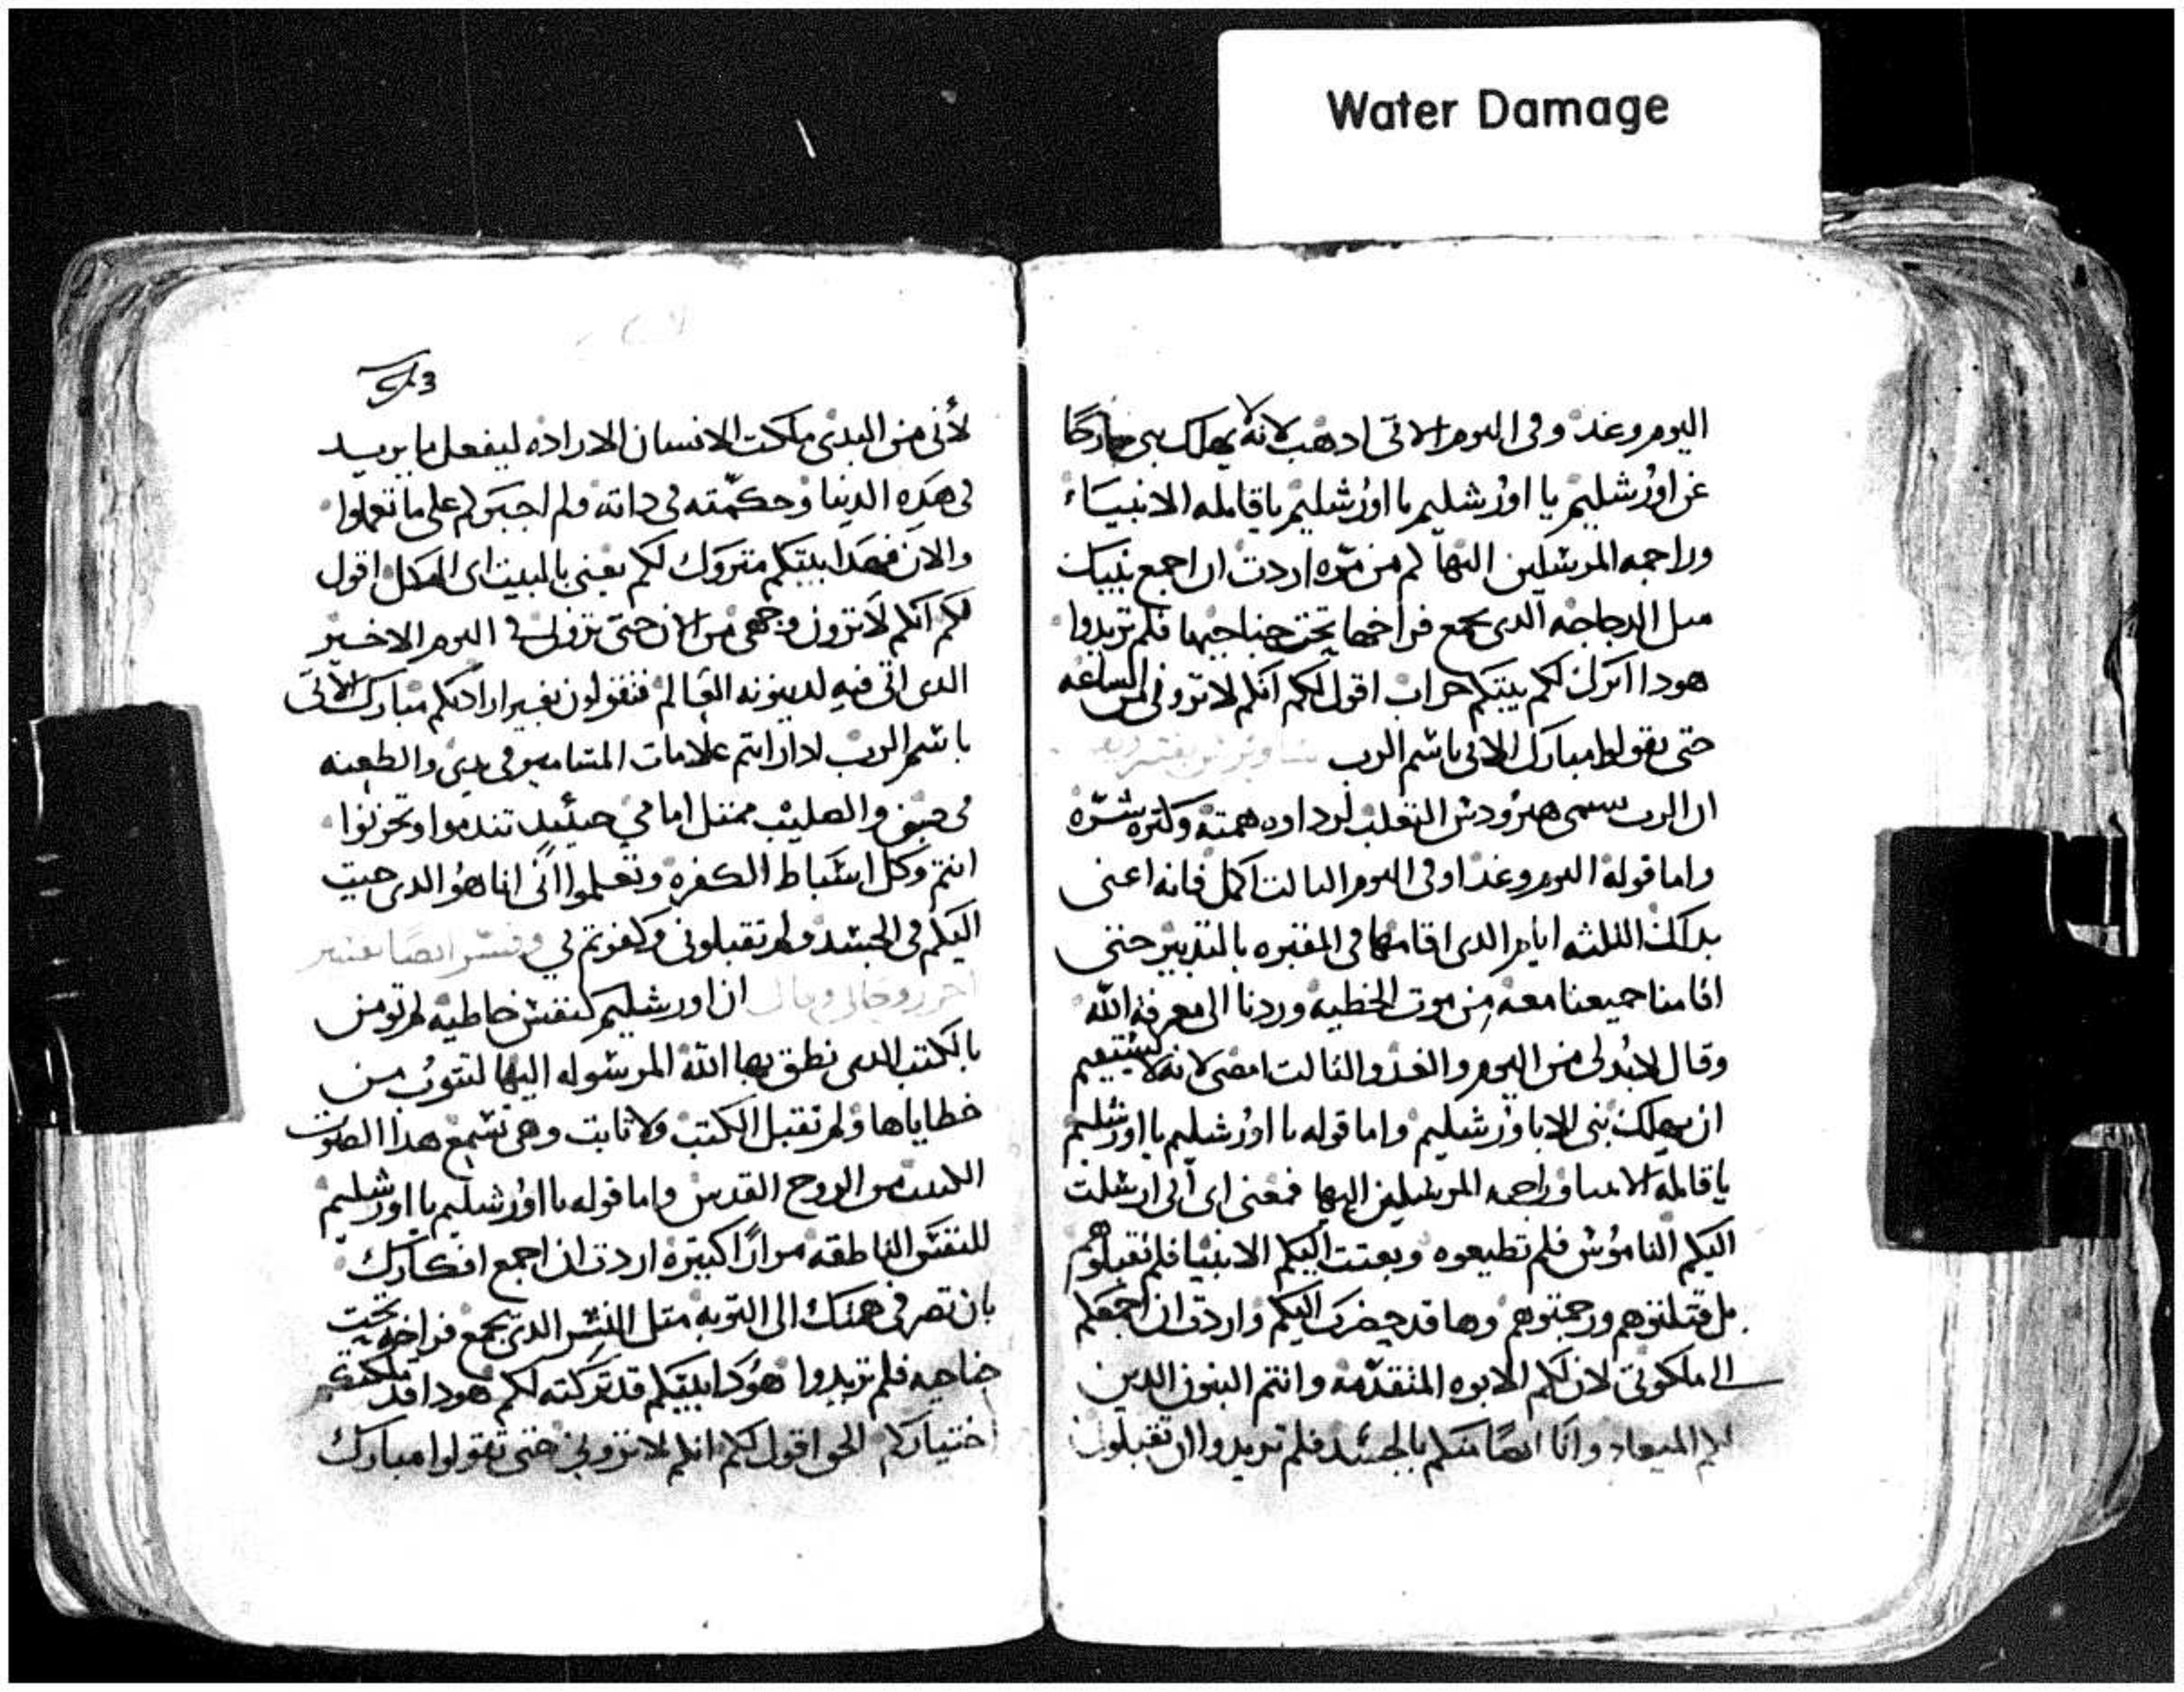 Water Damage
اليوم وغد وفى اليوم الاتى ادهب لانه لا يهلك نبى خارجًا
عن اورشليم يا اورشليم يا اورشليم ياقاتله الانبياء
وراجمه المرسلين اليها كم من مره اردت ان اجمع بنيك
متل الدجاجه الدى تجمع فراخها تحت جناحيها فلم تريدوا
هودا اترك لكم بيتكم خراب اقول لكم انكم لا ترونى من الساعه
حتى تقولوا مبارك الاتى باسم الرب
ان الرب سمى هيرودس التعلب لرداوه همته وكتره شره
واما قوله اليوم وغدا وفى اليوم التالت اكمل فانه اعنى
بدلك التلته ايام الدى اقامها فى المقبره بالتدبير حتى
اقامنا جميعنا معه من موت الخطيه وردنا الى معرفه الله
وقال لابد لى من اليوم والغد والتالت امضى لانه لا يستقيم
ان يهلك نبى الا باورشليم واما قوله يا اورشليم يا اورشليم
ياقاتله الانبيا وراجمه المرسلين اليها فمعنى اى انى ارسلت
اليكم الناموس فلم تطيعوه وبعتت اليكم الانبيا فلم تقبلوهم
بل قتلتوهم ورجمتوهم وها قد حضرت اليكم واردت ان اجمعكم
الى ملكوتى لان لكم الابوه المتقدمه وانتم البنون الدين
لكم الميعاد وانا ايضا منكم بالجسد فلم تريدوا ان تقبلونى
لأنى من البدى ملكت الانسان الاراده ليفعل ما يريد
فى هده الدنيا وحكمته فى داته ولم اجبركم على ما تعملوا
والان فهدا بيتكم متروك لكم يعنى بالبيت اى الهيكل اقول
لكم انكم لا ترون وجهى من الان حتى ترونى فى اليوم الاخير
الدى اتى فيه لدينونه العالم فتقولون بغير ارادتكم مبارك الاتى
باسم الرب ادا رايتم علامات المسامير فى يدى والطعنه
فى جنبى والصليب ممتل امامى حينيد تندموا وتحزنوا
انتم وكل اسباط الكفره وتعلموا انى انا هو الدى جيت
اليكم فى الجسد ولم تقبلونى وكفرتم بى وفسر ايضا تفسير
اخر روحانى وقال ان اورشليم كنفس خاطيه لم تومن
بالكتب الدى نطق بها الله المرسوله اليها لتتوب من
خطاياها ولم تقبل الكتب ولا تابت وهى تسمع هدا الصوت
من الروح القدس واما قوله يا اورشليم يا اورشليم
للنفس الناطقه مرارًا كتيره اردت ان اجمع افكارك
بان تصرفى همتك الى التوبه متل النسر الدى يجمع فراخه تحت
جناحيه فلم تريدوا هودا بيتكم قد تركته لكم هودا قد ملكتكم
اختياركم الحق اقول لكم انكم لا ترونى حتى تقولوا مبارك